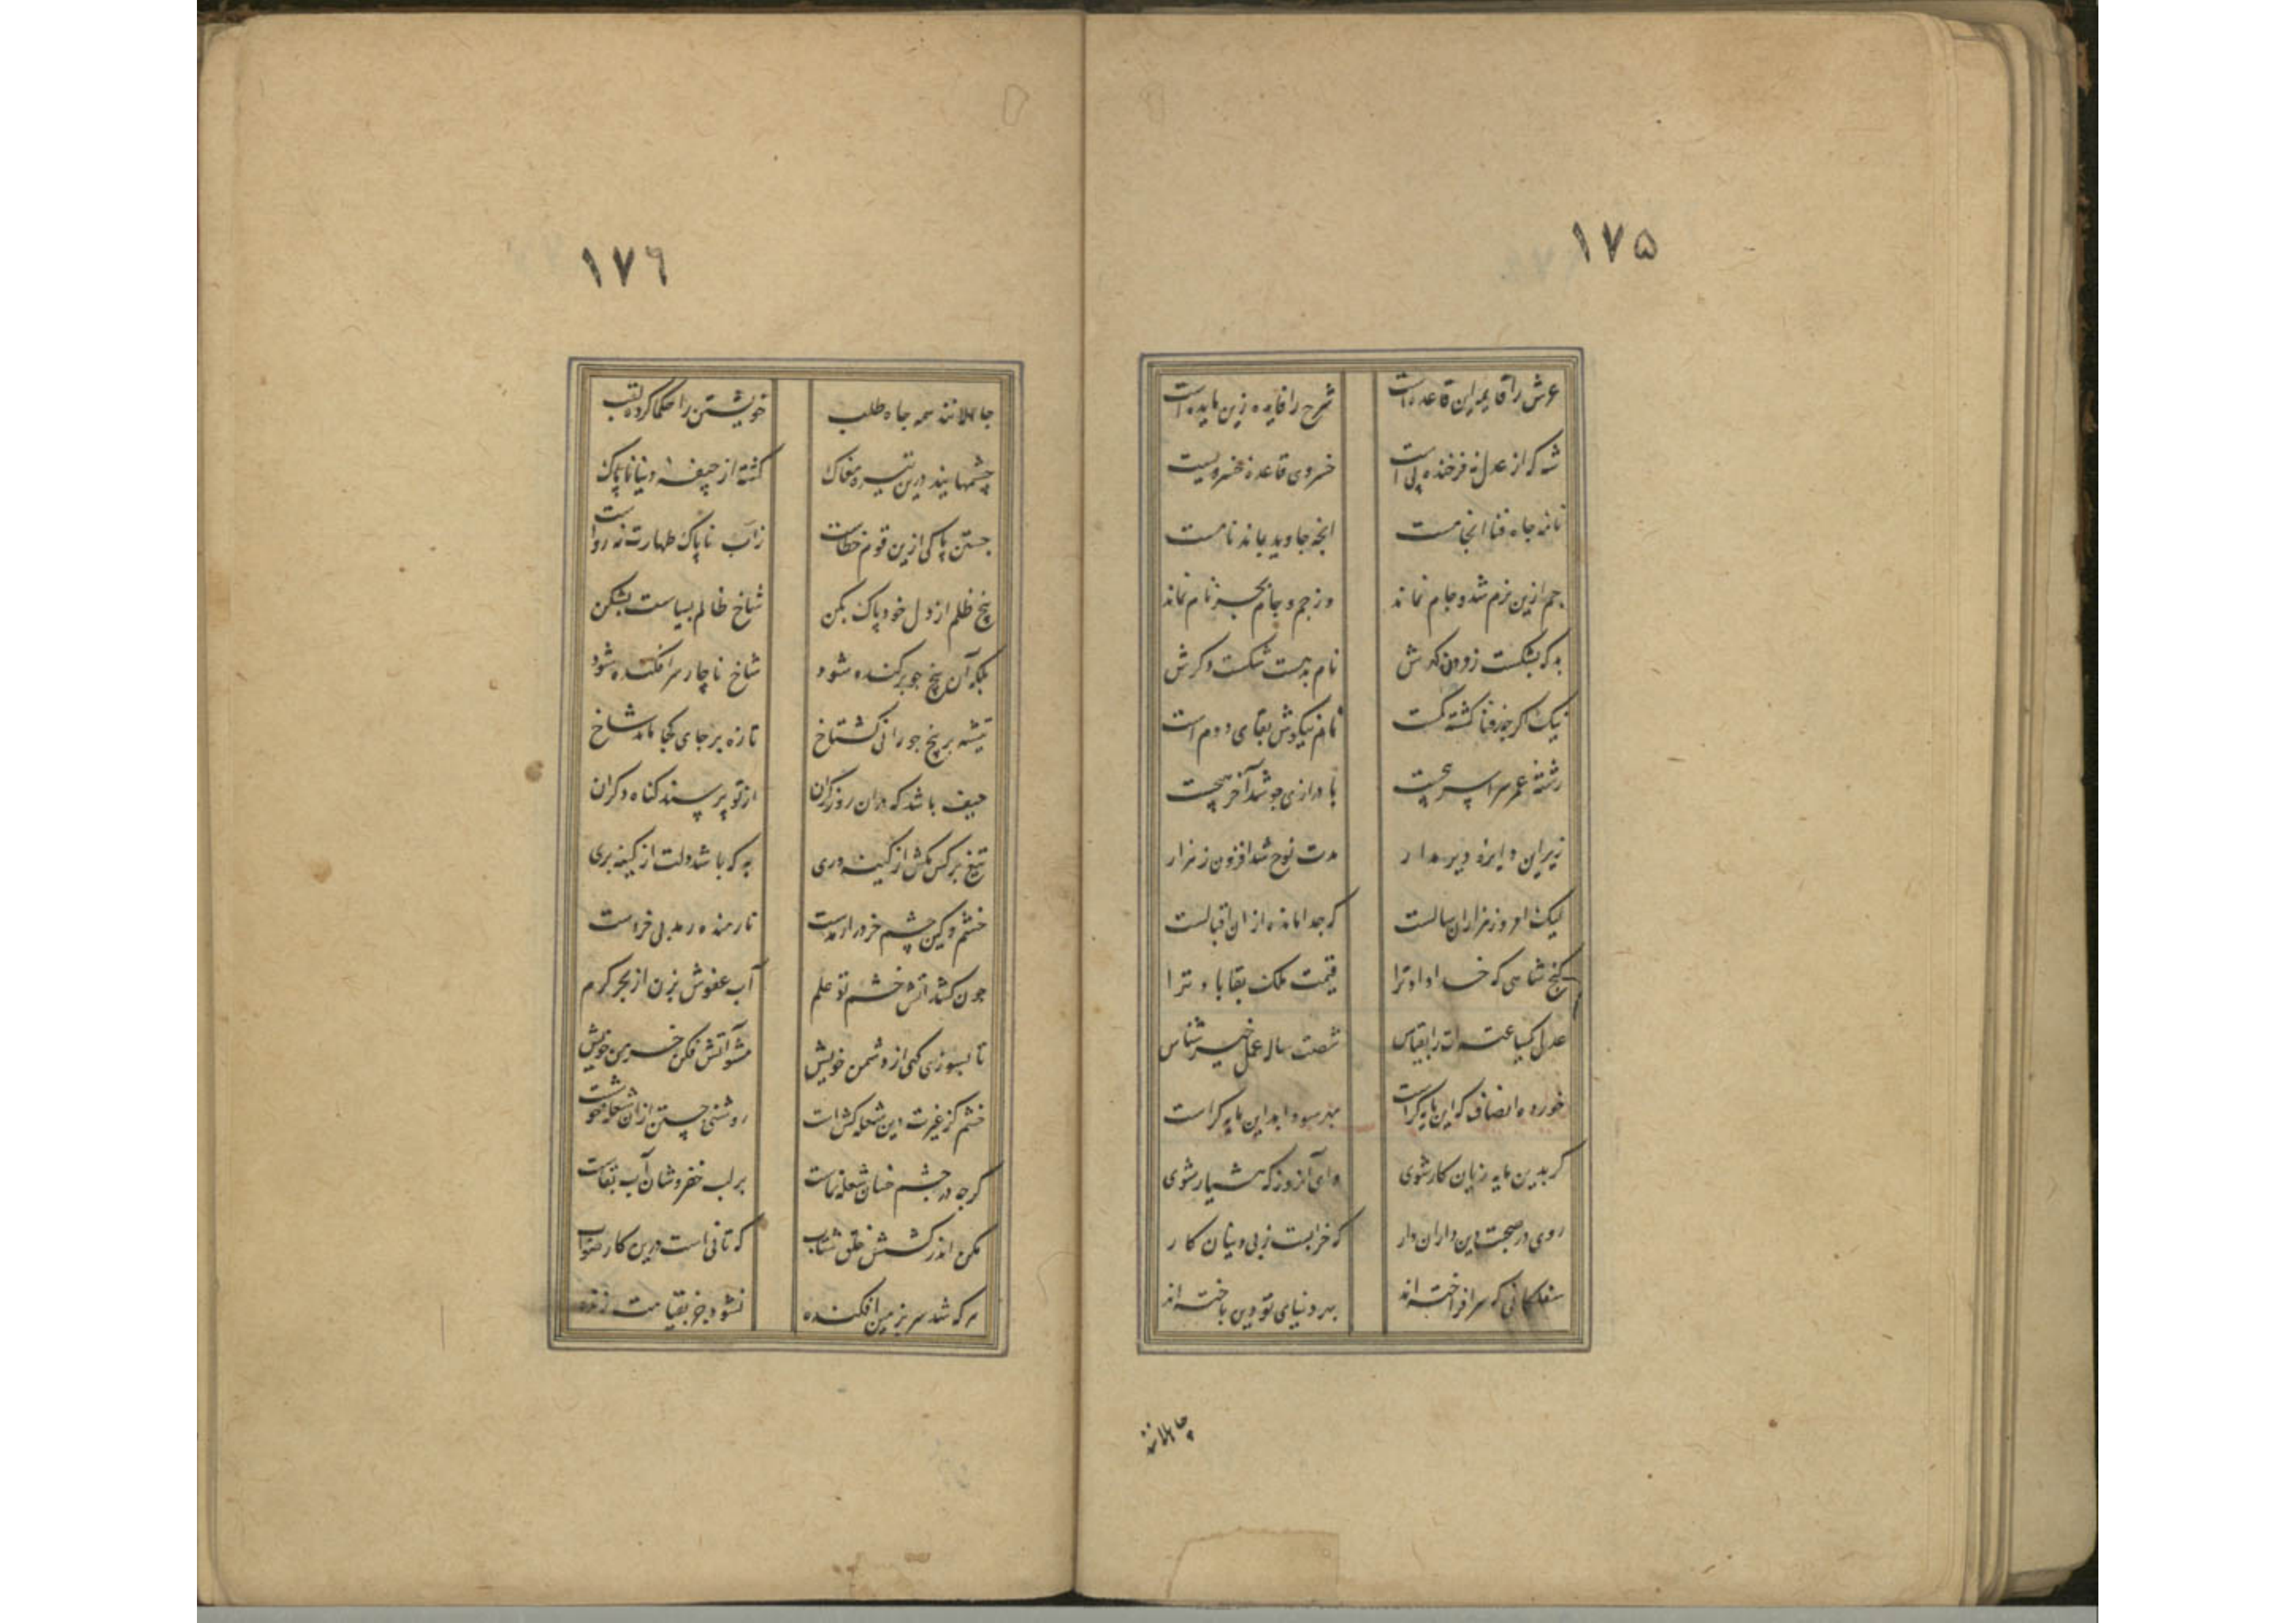 ١٧٥
عرش را قایمه این قاعده است شرح را فایده زین مایده است
شه که از عدل نه فرخنده پی است خسروی قاعده خسرو نیست
نامه جاه فنا انجامست انچه جاوید بماند نامست
جم ازین بزم شد و جام نماند وز جم و جام بجز نام نماند
بد که بشکست ز دون نام بدست شکست دگرش
نیک اگر چند فنا گشته گمست نام نیکوش بقای دومست
رشته عمر سراسر با درازی چو شد آخر هیچست
زیر این دایره دیر مدار مدت نوح شد افزون ز هزار
لیک امروز هزاران سالست که جدا مانده از ان اقبالست
گنج شاهی که خدا داد ترا قیمت ملک بقا باد ترا
عدل یکساعته ات را بقیاس شصت ساله عمل خیر شناس
خورده انصاف که این مایه کراست بهر سود ابد این مایه کراست
گر بدین مایه زیان کار شوی وای آنروز که هشیار شوی
روی در صحبت دین داران دار که خرابست ز بی دینان کار
سفلکانی که سر افراخته اند بهر دنیای تو دین باخته اند
جاهلانند
١٧٦
جاهلانند همه جاه طلب خویشتن را حکما کرده لقب
چشمهایند درین تیره مغاک گشته از جیفه دنیا ناپاک
جستن پاکی ازین قوم خطاست زاب ناپاک طهارت نه رواست
بیخ ظلم از دل خود پاک بکن شاخ ظالم بسیاست بشکن
بلکه آن بیخ چو برکنده شود شاخ ناچار سرافکنده شود
تیشه بر بیخ چو رانی گستاخ تازه بر جای کجا ماند شاخ
حیف باشد که دران روز گران از تو پرسند گناه دگران
تیغ بر کس مکش از کینه وری به که باشد دلت از کینه بری
خشم و کین چشم خرد را رمدست تا رمنده رمد بی خردست
چون کشد آتش خشم تو علم آب عفوش بزن از بحر کرم
تا بسوزی کهی از دشمن خویش مشو آتش فکن خرمن خویش
خشم کز غیرت دین شعله کش است روشنی جستن ازان شعله خوشست
گرچه در چشم خسان شعله نماست بر لب خضروشان آب بقاست
مکن اندر کشش خلق شتاب که تانی است درین کار صواب
هر که شد سر بزمین افکنده نشود جز بقیامت زنده